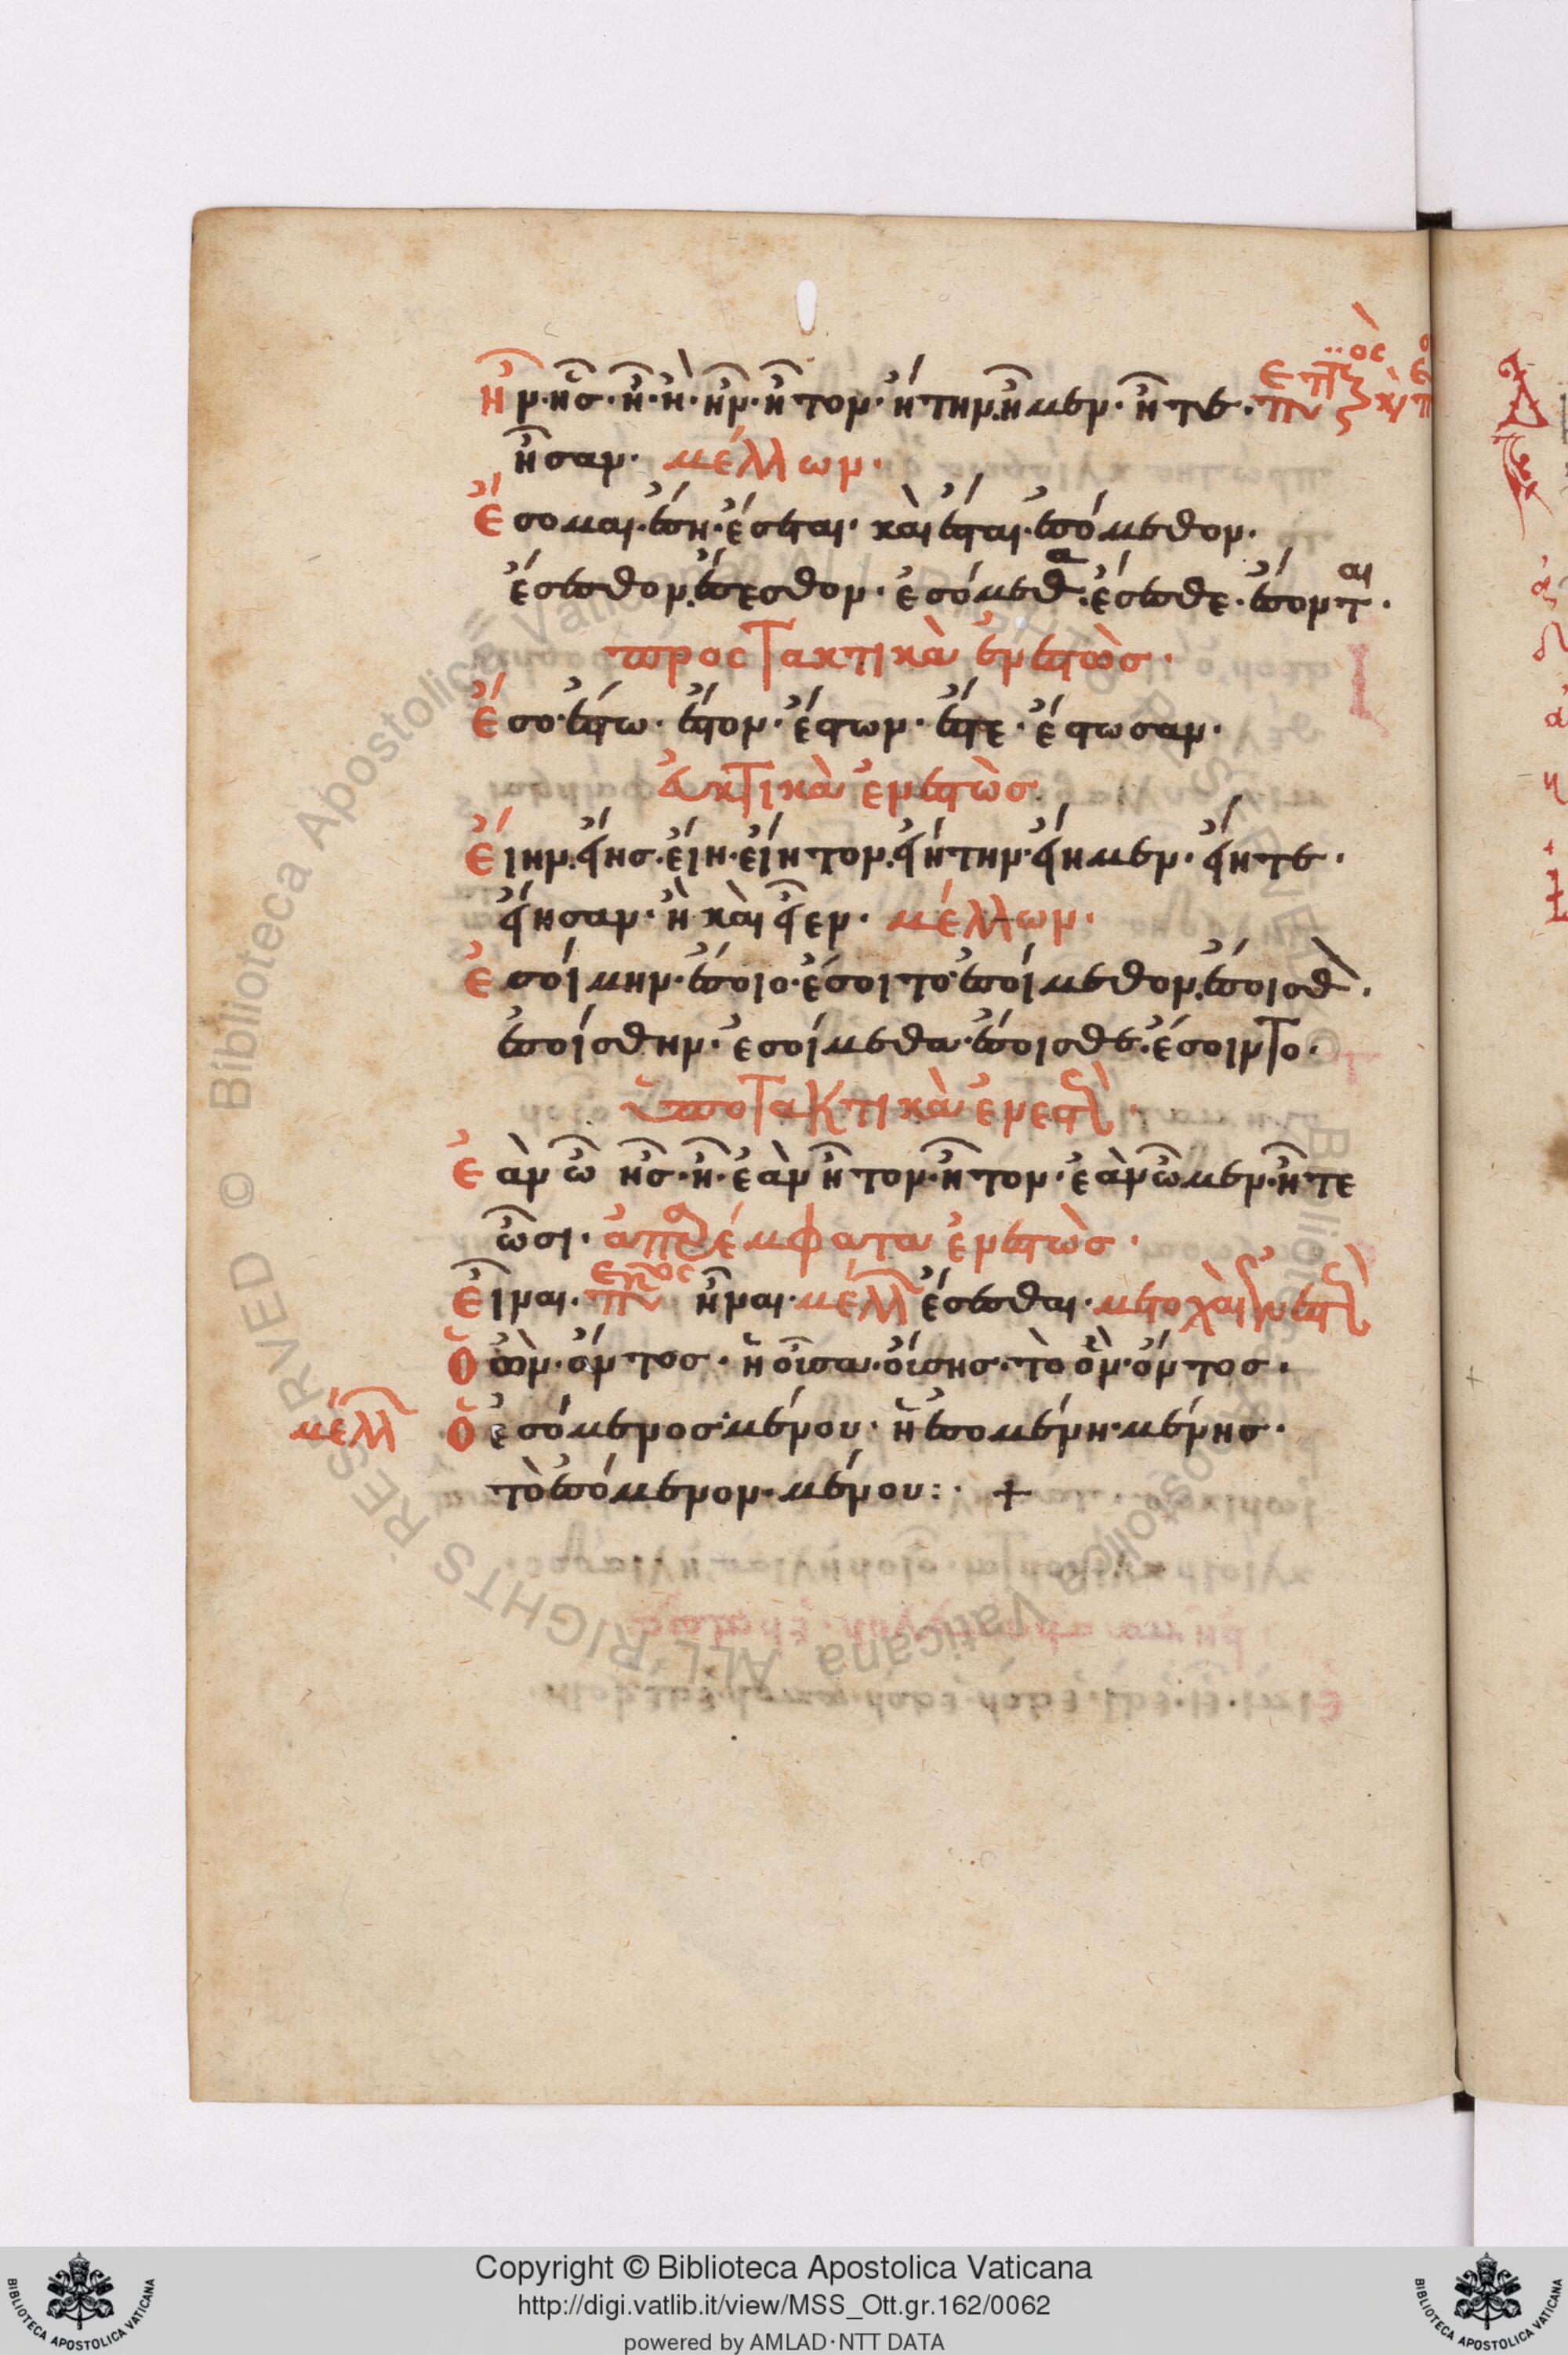 ἦν· ἦς· ἦ· ἢ· ἦν· ἦτον· ἤτην· ἦμεν· ἦτε·
ἦσαν· μέλλων·
ἔσομαι· ἔση· ἔσεται· καὶ ἔσται· ἐσόμεθον·
ἔσεσθον· ἔσεσθον· ἐσόμεθα· ἔσεσθε· ἔσονται·
προστακτικὰ ἐνεστὼς·
ἔσο· ἔστω· ἔστον· ἔστων· ἔστε· ἔστωσαν·
ἐυκτικὰ ἐνεστὼς·
εἴην· εἴης· εἴη· εἴητον· εἰήτην· εἴημεν· εἴητε·
εἴησαν· ἢ καὶ εἶεν· μέλλων·
ἐσοίμην· ἔσοιο· ἔσοιτο· ἐσοίμεθον· ἔσοισθον·
ἐσοίσθην· ἐσοίμεθα· ἔσοισθε· ἔσοιντο·
ὑποτακτικὰ ἐνεστὼς·
ἐὰν ὦ ἦς· ἦ· ἐὰν ἦτον· ἦτον· ἐὰν ὦμεν· ἦτε
ὦσι· ἀπαρέμφατα ἐνεστὼς·
εἶναι· ἦναι· μέλλ ἔσεσθαι· μετοχαὶ ἐνεστὼς
ὁ ὢν· ὄντος· ἡ οὖσα· οὔσης· τὸ ὂν· ὄντος·
μέλλ ὁ ἐσόμενος· μένου· ἡ ἐσομένη· μένης·
τὸ ἐσόμενον· μένου:· +
Copyright © Biblioteca Apostolica Vaticana
http://digi.vatlib.it/view/MSS_Ott.gr.162/0062
powered by AMLAD·NTT DATA